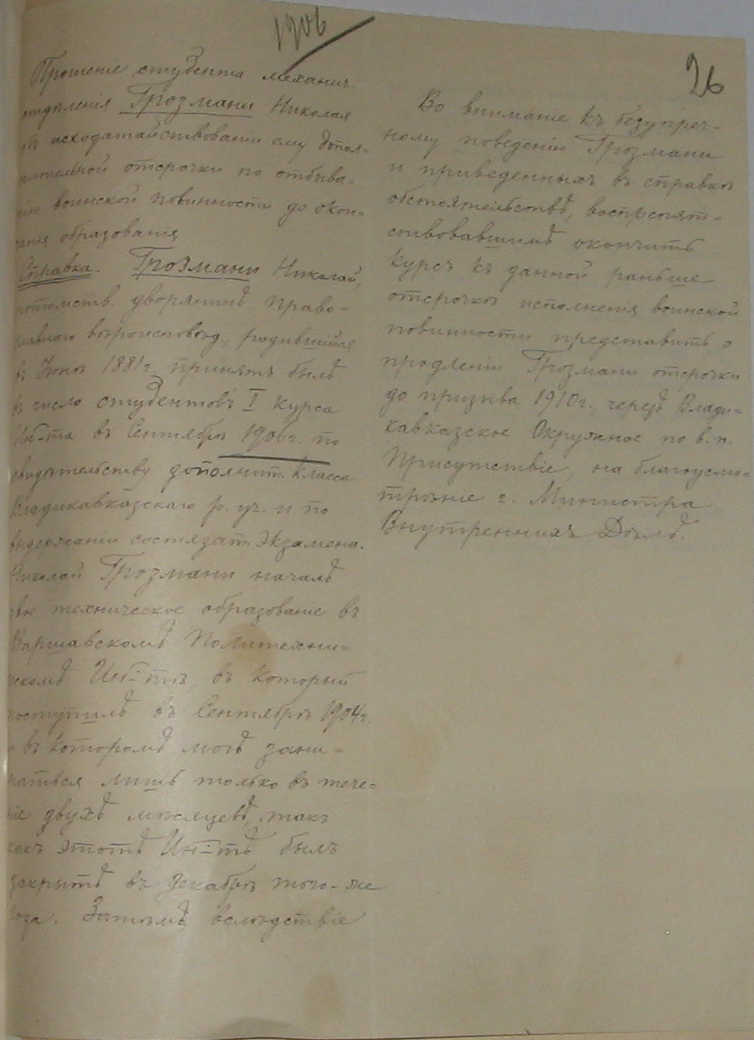 1906
26
Прошенiе студента механич.
отдѣленiя Грозмани Николая
объ исходатайствованiи ему допол-
нительной отсрочки по отбыва-
нiю воинской повинности до окон-
чанiя образованiя
Справка. Грозмани Николай,
потомств. дворянинъ, право-
славнаго вѣроисповѣд., родившiйся
въ Iюнѣ 1881 г., принятъ былъ
въ число студентовъ I курса
Ин-та въ Сентябрѣ 1906 г. по
свидѣтельству дополнит. класса
Владикавказскаго р. уч. и по
выдержанiи состязат. экзамена.
Николай Грозмани началъ
свое техническое образованiе въ
Варшавскомъ Политехни-
ческомъ Ин-тѣ, въ который
поступилъ въ Сентябрѣ 1904 г.
и въ которомъ могъ зани-
маться лишь только въ тече-
нiе двухъ мѣсяцевъ, такъ
какъ этотъ Ин-тъ былъ
закрытъ въ декабрѣ того-же
года. Затѣмъ вслѣдствiе
Во вниманiе къ безупреч-
ному поведенiю Грозмани
и приведенныхъ въ справкѣ
обстоятельствъ, воспрепят-
ствовавшимъ окончить
курсъ къ данной раньше
отсрочкѣ исполненiя воинской
повинности представить о
продленiи Грозмани отсрочки
до призыва 1910 г., черезъ Влади-
кавказское Окружное по в. п.
Присутствiе, на благоусмо-
трѣнiе г. Министра
Внутреннихъ Дѣлъ.